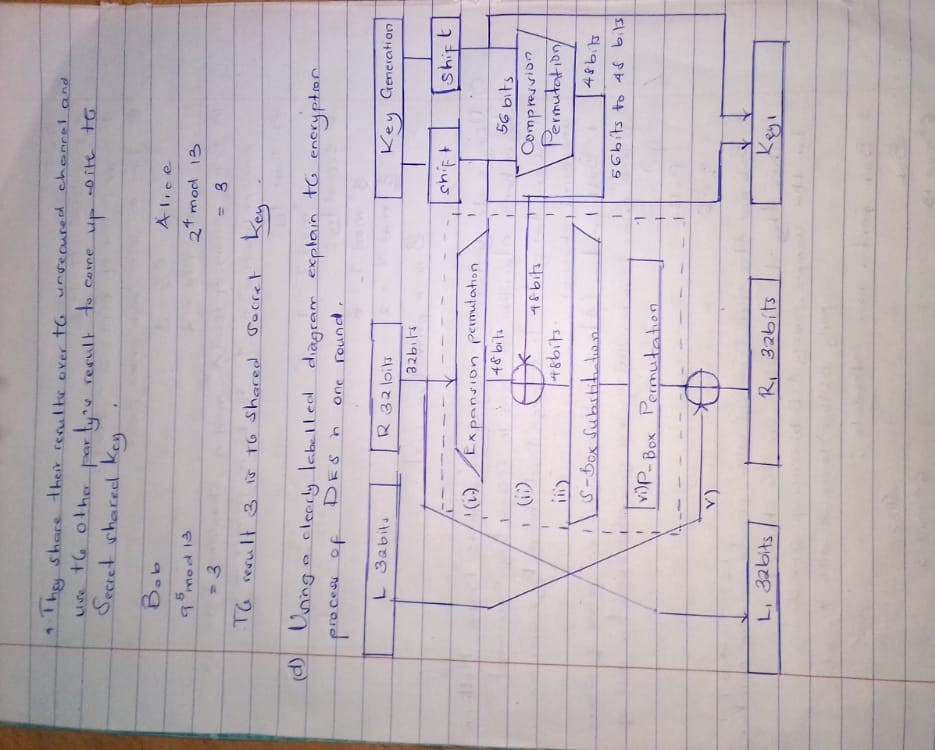 They share their results over the unsecured channel and
use the other party's result to come up with the
Secret shared key.
Bob
Alice
9⁵ mod 13
2⁴ mod 13
= 3
= 3
The result 3 is the shared secret key.
(d) Using a clearly labelled diagram explain the encryption
process of DES in one round.
L 32bits
R 32bits
Key Generation
32bits
shift
shift
(i) Expansion permutation
48bits
56 bits
(ii)
48bits
Compression
Permutation
iii)
48bits
S-Box Substitution
48bits
56bits to 48 bits
vi) P-Box Permutation
v)
L₁ 32bits
R₁ 32bits
Key₁